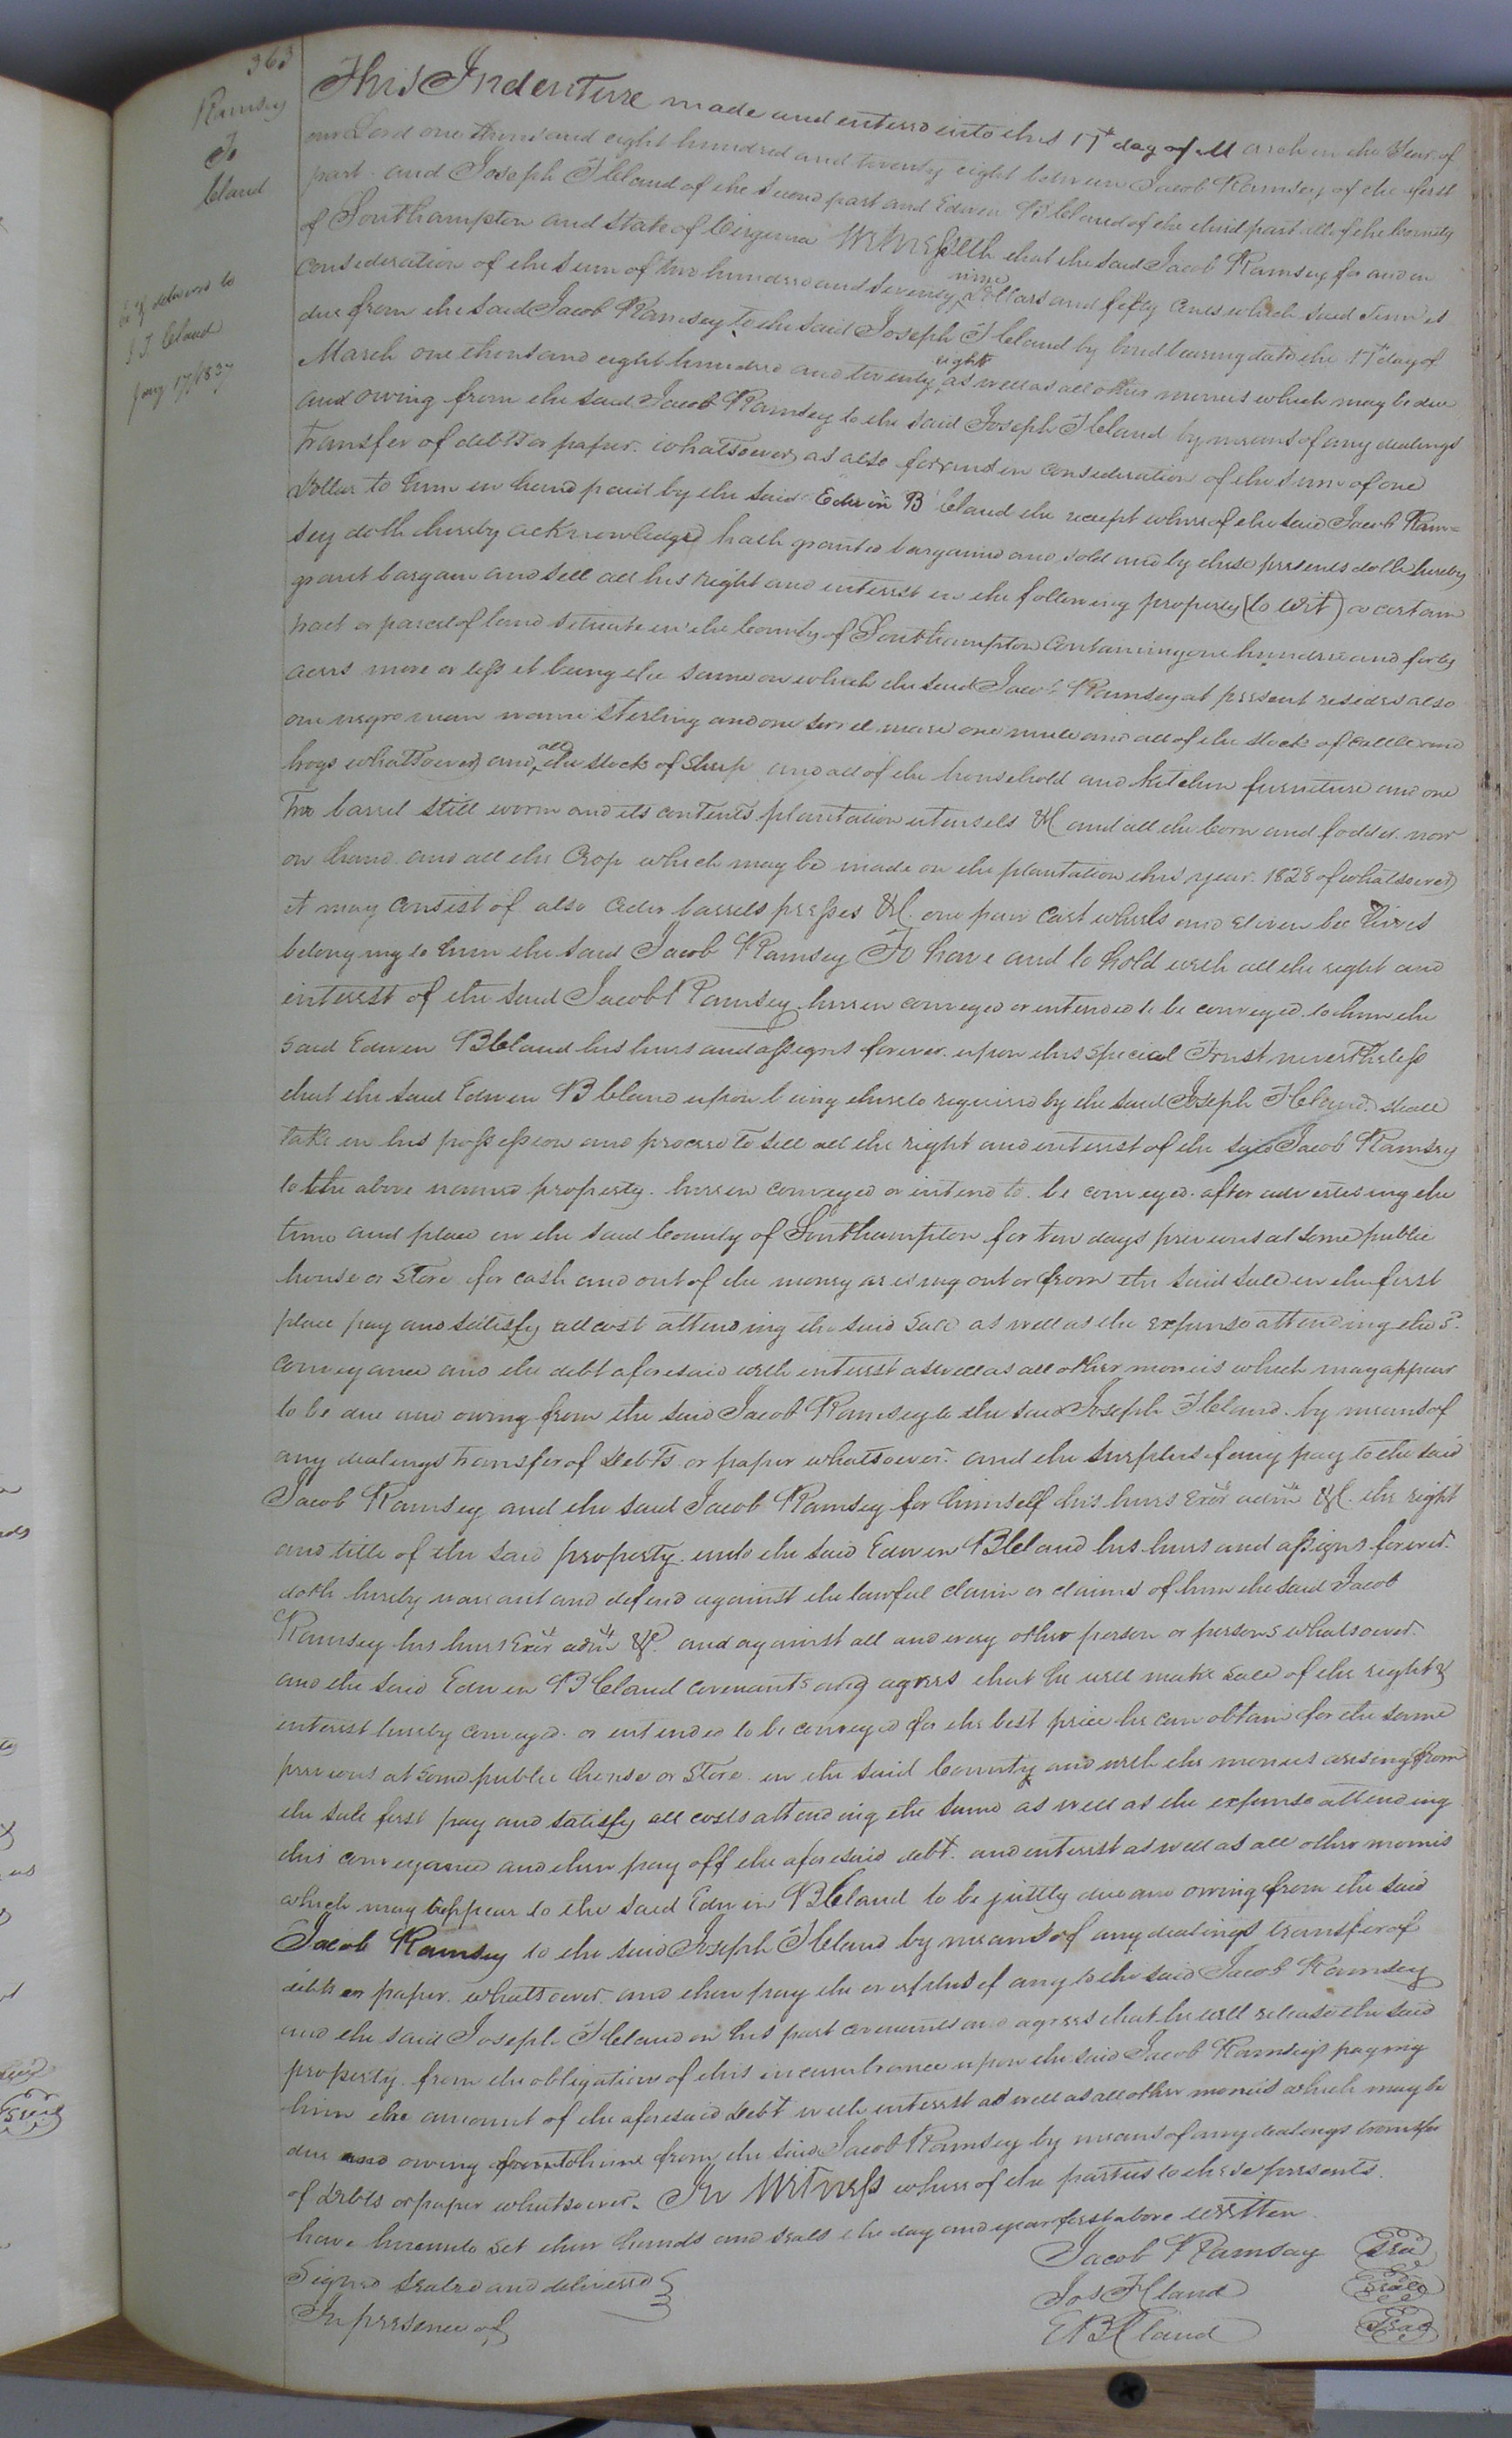 363
Ramsey
To
Cland
delivered to
J. T. Cland
Jany 17/1837
This Indenture made and entered into this 17th day of March in the Year of
our Lord one thousand eight hundred and twenty eight between Jacob Ramsey of the first
part and Joseph T Cland of the second part and Edwin B Cland of the third part all of the County
of Southampton and State of Virginia Witnesseth that the said Jacob Ramsey for and in
consideration of the sum of two hundred and seventy nine dollars and fifty cents which said sum is
due from the said Jacob Ramsey to the said Joseph T Cland by bond bearing date the 17th day of
March one thousand eight hundred and twenty eight as well as all other monies which may be due
and owing from the said Jacob Ramsey to the said Joseph T Cland by means of any dealings
transfer of debts or paper whatsoever as also for and in consideration of the sum of one
dollar to him in hand paid by the said Edwin B Cland the receipt whereof the said Jacob Ram=
sey doth hereby acknowledge hath granted bargained and sold and by these presents doth hereby
grant bargain and sell all his right and interest in the following property (to wit) a certain
tract or parcel of land situate in the County of Southampton containing one hundred and forty
acres more or less it being the same on which the said Jacob Ramsey at present resides also
one negro man name Sterling and one sorrel mare one mule and all of the stock of cattle and
hogs whatsoever and all the stock of sheep and all of the household and kitchen furniture and one
two barrel still worm and its contents plantation utensels &C and all the corn and fodder now
on hand and all the Crop which may be made on the plantation this year 1828 of whatsoever
it may consist of also cider barrels presses &C. one pair cart wheels and eleven bee hives
belonging to him the said Jacob Ramsey To have and to hold with all the right and
interest of the said Jacob Ramsey herein conveyed or intended to be conveyed to him the
said Edwin B Cland his heirs and assigns forever upon this special Trust nevertheless
that the said Edwin B Cland upon being thereto required by the said Joseph T Cland shall
take in his possession and proceed to sell all the right and interest of the said Jacob Ramsey
to the above named property herein conveyed or intend to be conveyed after advertising the
time and place in the said County of Southampton for ten days previous at some public
house or store for cash and out of the money arising out or from the said sale in the first
place pay and satisfy all cost attending the said sale as well as the expense attending the sd
conveyance and the debt aforesaid with interest as well as all other monies which may appear
to be due and owing from the said Jacob Ramsey to the said Joseph T Cland by means of
any dealings transfer of Debts or paper whatsoever and the surplus if any pay to the said
Jacob Ramsey and the said Jacob Ramsey for himself his heirs Exor admr &C. the right
and title of the said property unto the said Edwin B Cland his heirs and assigns forever
doth hereby warrant and defend against the lawful claim or claims of him the said Jacob
Ramsey his heirs Exor admr &C. and against all and every other person or persons whatsoever
and the said Edwin B Cland covenants and agrees that he will make sale of the right &
interest hereby conveyed or intended to be conveyed for the best price he can obtain for the same
previous at some public house or store in the said County and with the monies arising from
the sale first pay and satisfy all costs attending the same as well as the expense attending
this conveyance and then pay off the aforesaid debt and interest as well as all other monies
which may appear to the said Edwin B Cland to be justly due and owing from the said
Jacob Ramsey to the said Joseph T Cland by means of any dealings transfer of
debts or paper whatsoever and then pay the overplus if any to the said Jacob Ramsey
and the said Joseph T Cland on his part covenants and agrees that he will release the said
property from the obligation of this incumbrance upon the said Jacob Ramsey's paying
him the amount of the aforesaid debt with interest as well as all other monies which may be
due and owing to him from the said Jacob Ramsey by means of any dealings transfer
of debts or paper whatsoever. In Witness whereof the parties to these presents
have hereunto set their hands and seals the day and year first above written
Signed sealed and delivered
In presence of
Jacob Ramsay Seal
Jos T Cland Seal
E B Cland Seal